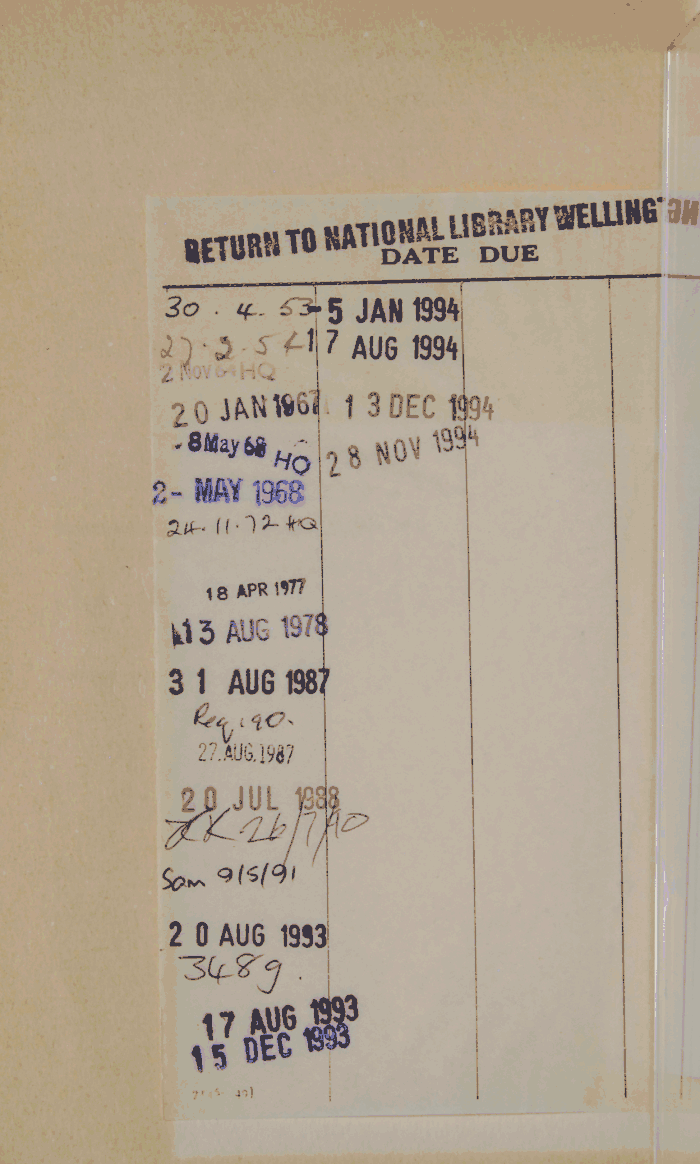 RETURN TO NATIONAL LIBRARY WELLING
DATE DUE
30 . 4. 53
27.2.54
2 Nov 64 HQ
20 JAN 1967
- 8 May 68 HQ
2- MAY 1968
24.11.72 HQ
18 APR 1977
13 AUG 1978
31 AUG 1987
Req 190.
27.AUG.1987
20 JUL 1988
26/7/90
Sam 9/5/91
20 AUG 1993
3489.
17 AUG 1993
15 DEC 1993
-5 JAN 1994
17 AUG 1994
13 DEC 1994
28 NOV 1994